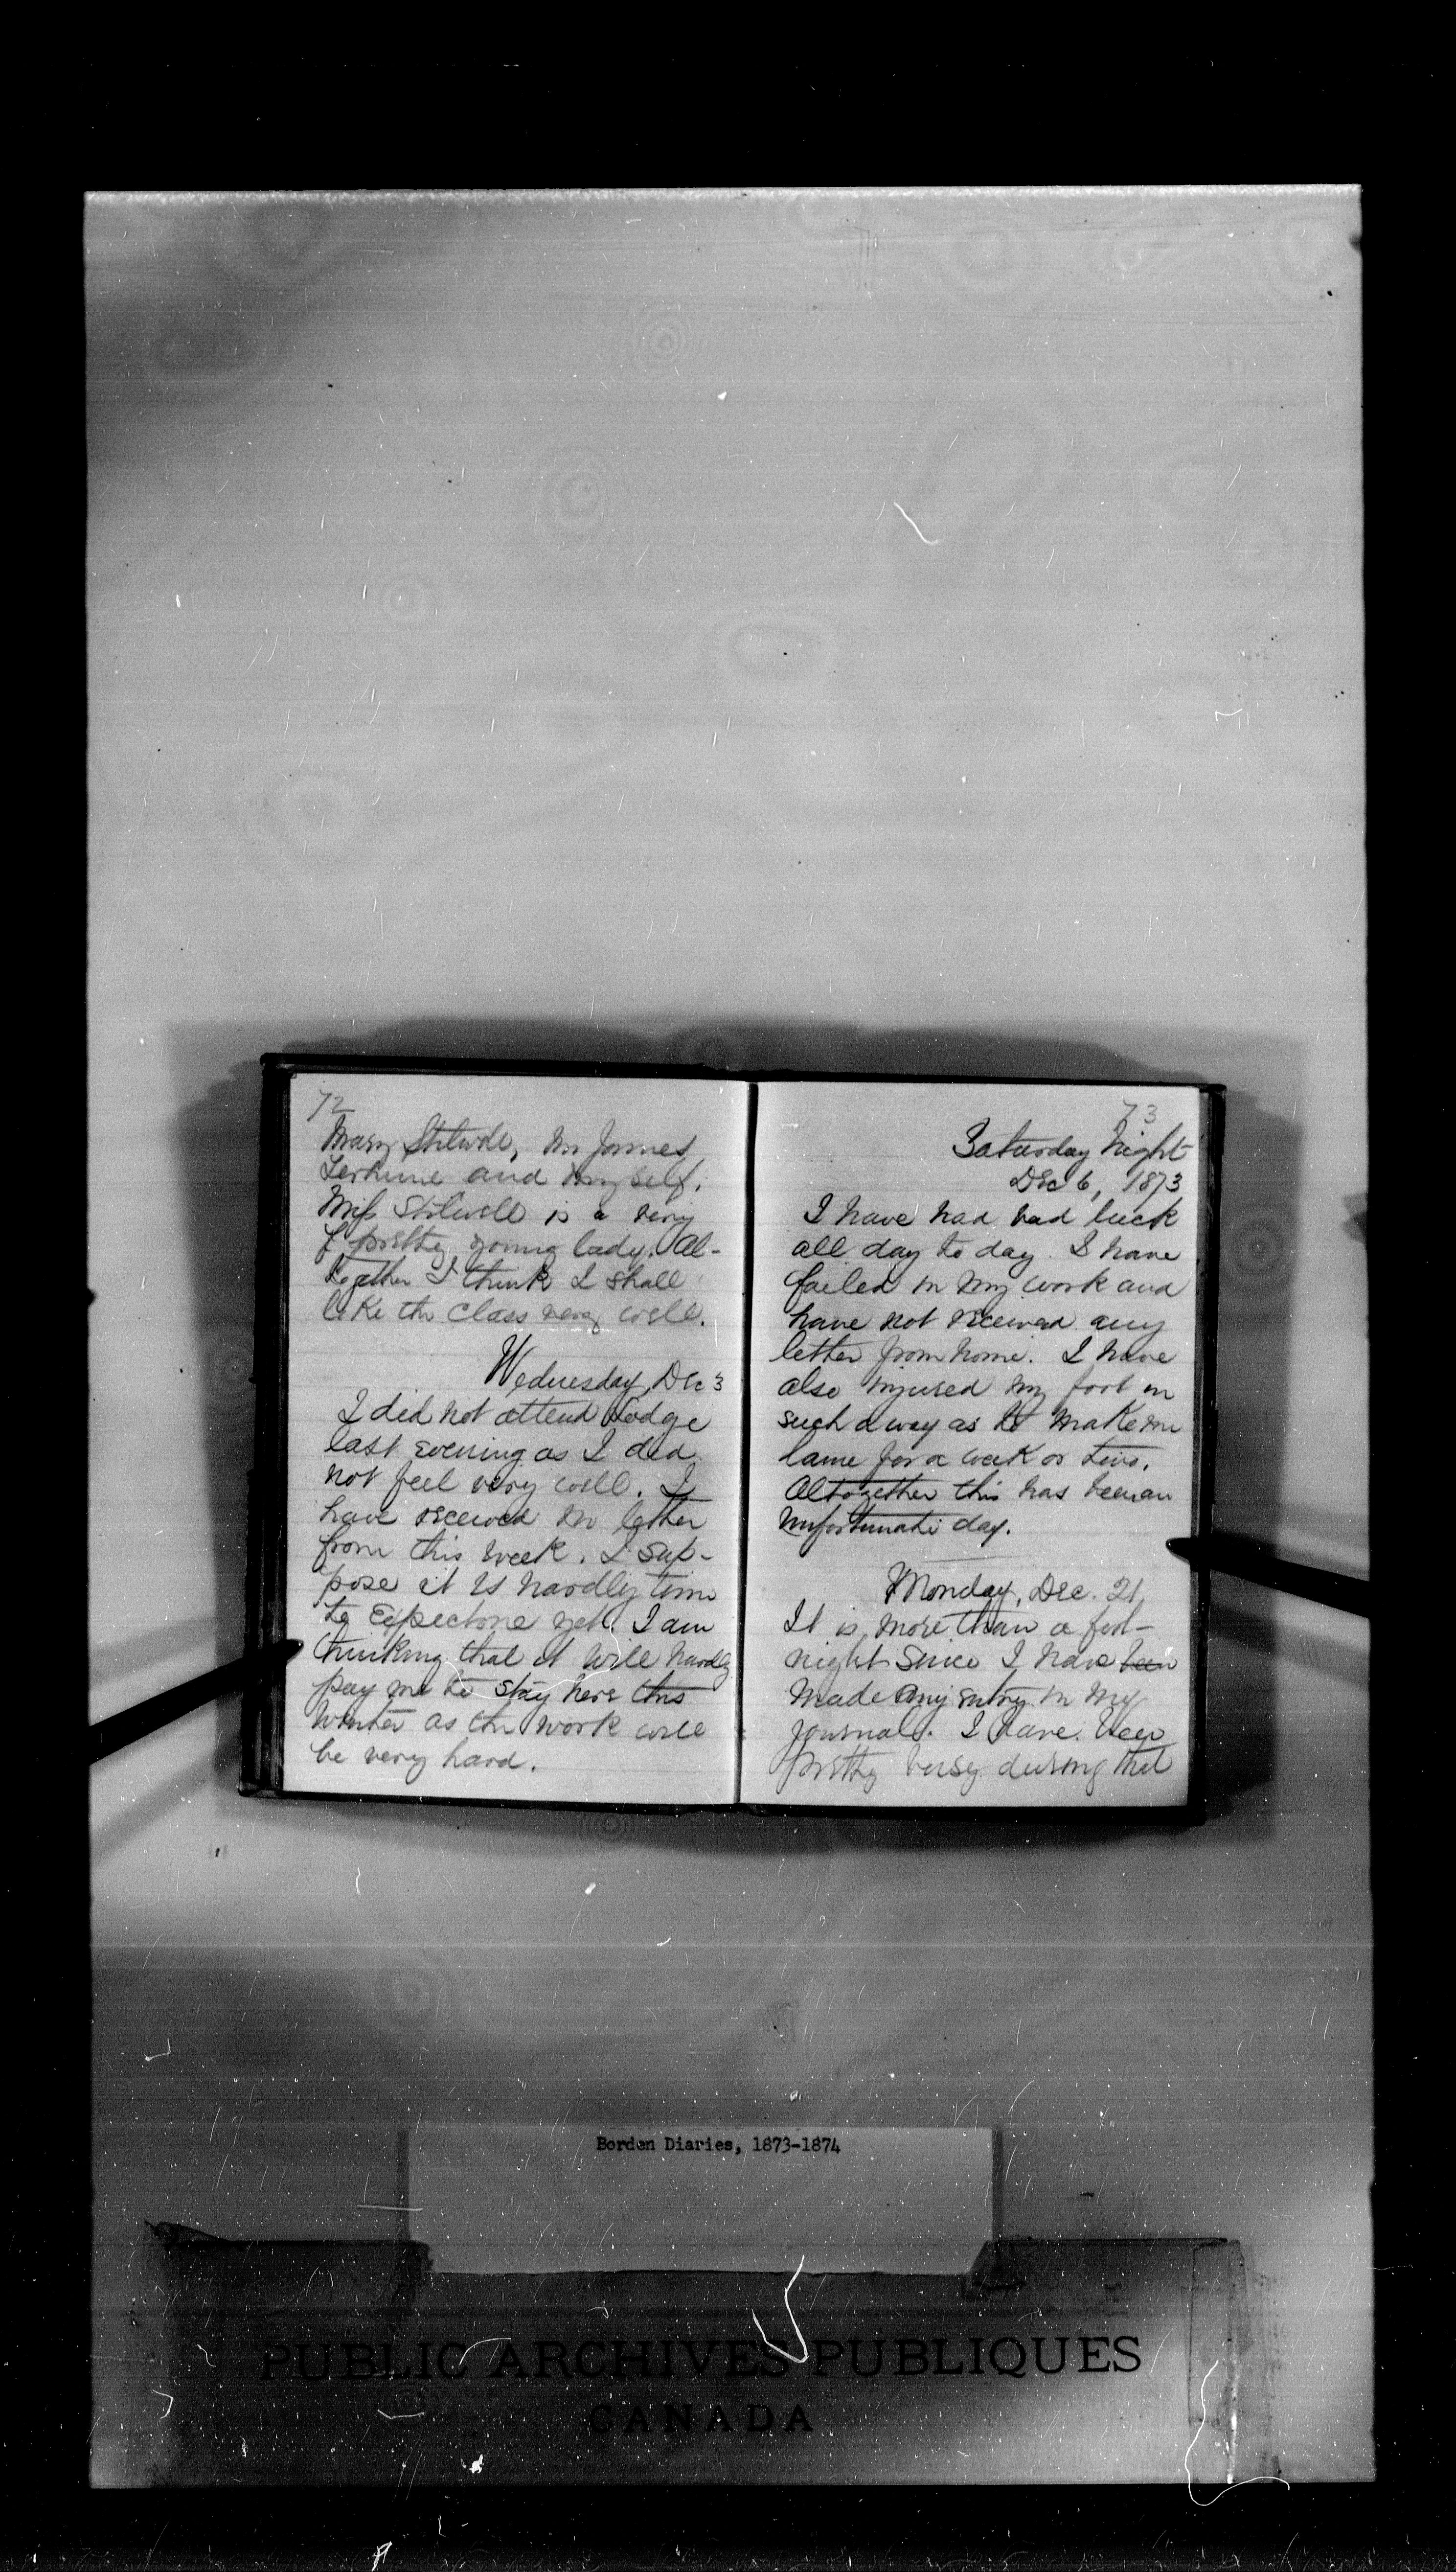 72
Mary Stilwell, Mr James
and myself.
Miss Stilwell is a very
pretty young lady. Al-
together I think I shall
like the class very well.
Wednesday, Dec 3
I did not attend Lodge
last evening as I did
not feel very well. I
have received no letter
from this week. I sup-
pose it is hardly time
to expect one yet. I am
thinking that it will hardly
pay me to stay here this
winter as the work will
be very hard.
73
Saturday Night
Dec 6, 1873
I have had bad luck
all day to day. I have
failed in my work and
have not received any
letter from home. I have
also injured my foot in
such a way as to make me
lame for a week or two.
Altogether this has been an
unfortunate day.
Monday, Dec. 21
It is more than a fort-
night since I have been
made any entry in my
journal. I have been
pretty busy during that
Borden Diaries, 1873-1874
PUBLIC ARCHIVES PUBLIQUES
CANADA